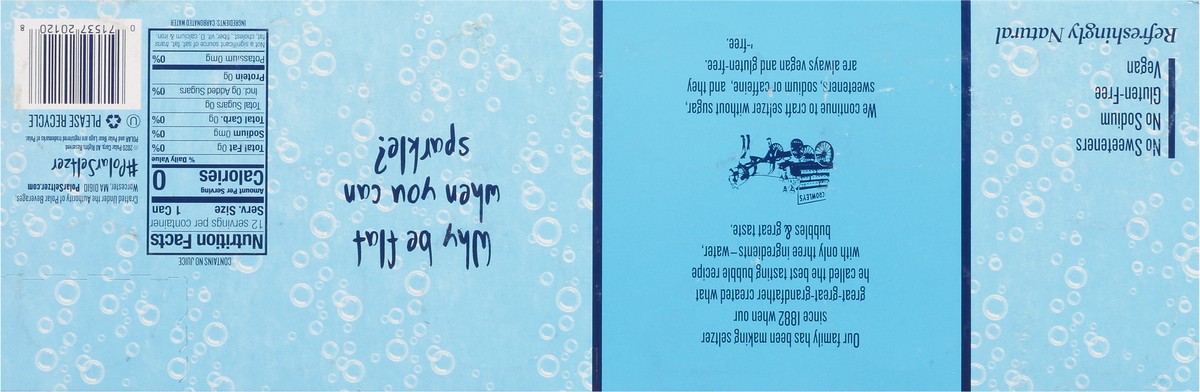 No Sweeteners
No Sodium
Gluten-Free
Vegan
Refreshingly Natural
Our family has been making seltzer
since 1882 when our
great-great-grandfather created what
he called the best tasting bubble recipe
with only three ingredients–water,
bubbles & great taste.
CROWLEYS
We continue to craft seltzer without sugar,
sweeteners, sodium or caffeine, and they
are always vegan and gluten-free.
Why be flat
when you can
sparkle?
CONTAINS NO JUICE
Nutrition Facts
12 servings per container
Serv. Size 1 Can
Amount Per Serving
Calories 0
% Daily Value
Total Fat 0g 0%
Sodium 0mg 0%
Total Carb. 0g 0%
Total Sugars 0g
Incl. 0g Added Sugars 0%
Protein 0g
Potassium 0mg 0%
Not a significant source of sat. fat, trans
fat, cholest., fiber, vit. D, calcium & iron
INGREDIENTS: CARBONATED WATER
Crafted Under the Authority of Polar Beverages
Worcester, MA 01610 PolarSeltzer.com
#PolarSeltzer
© 2020 Polar Corp. All Rights Reserved.
POLAR and Polar Bear Logo are registered trademarks of Polar.
U PLEASE RECYCLE
0 71537 20120 8